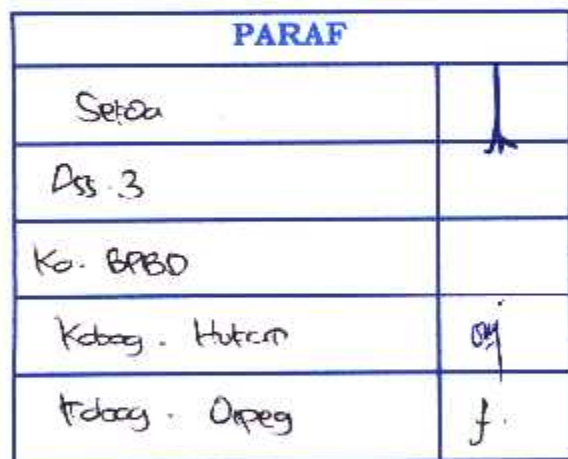 PARAF
Setda
Ass. 3
Ka. BPBD
Kabag. Hukum
Kabag. Orpeg